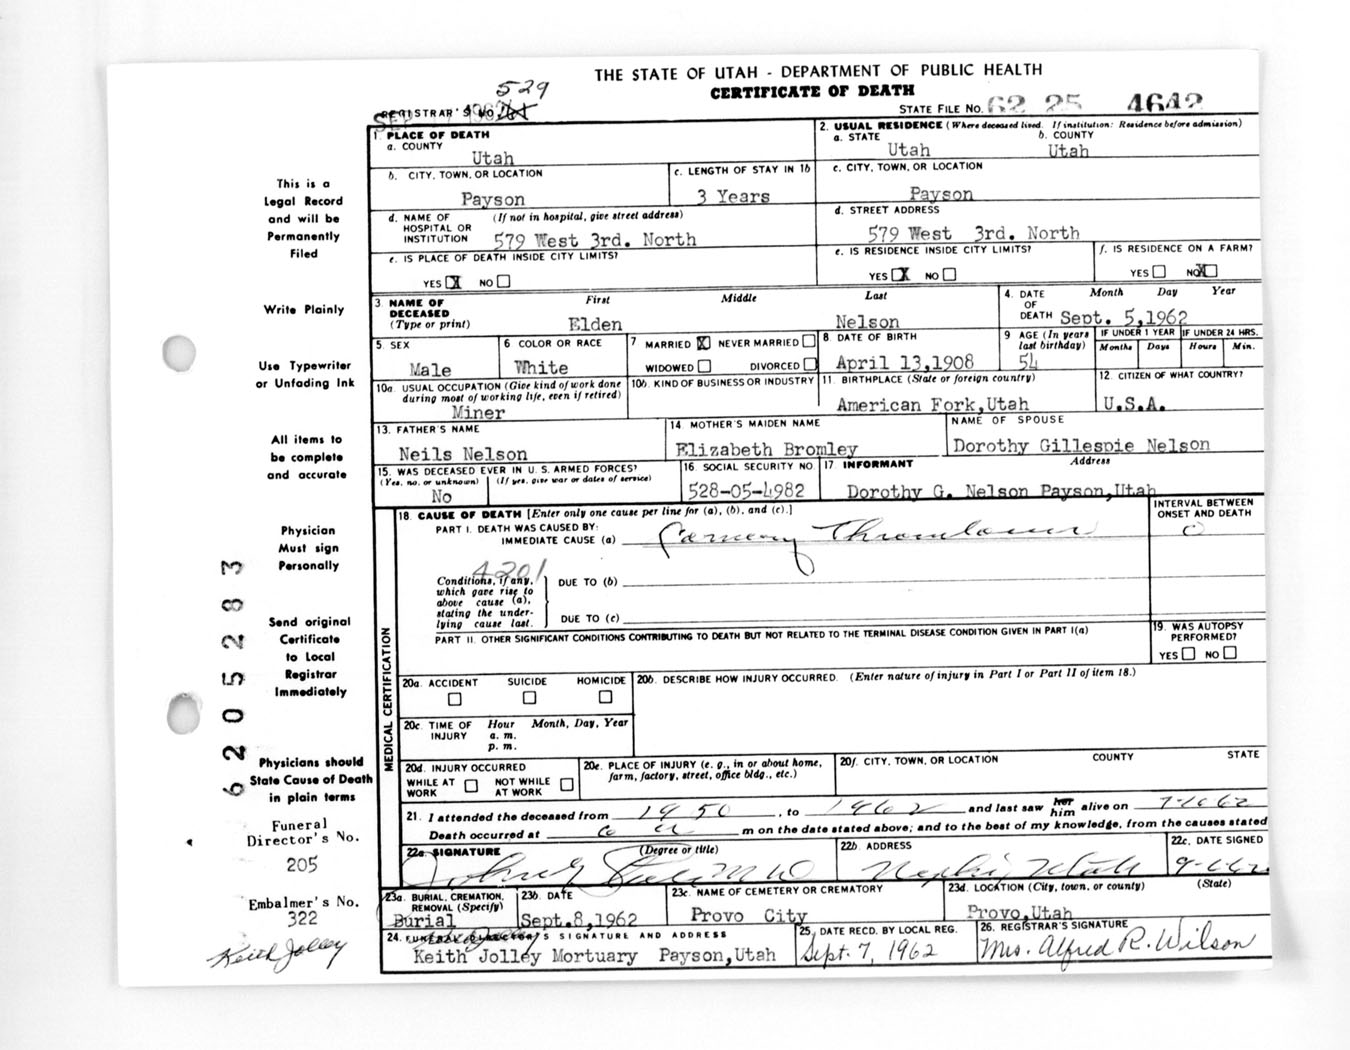 THE STATE OF UTAH - DEPARTMENT OF PUBLIC HEALTH
CERTIFICATE OF DEATH
529
REGISTRAR'S NO.
STATE FILE NO. 62 25 4642
1. PLACE OF DEATH
a. COUNTY
Utah
2. USUAL RESIDENCE (Where deceased lived. If institution: Residence before admission)
a. STATE b. COUNTY
Utah Utah
b. CITY, TOWN, OR LOCATION
Payson
c. LENGTH OF STAY IN 1b
3 Years
c. CITY, TOWN, OR LOCATION
Payson
d. NAME OF HOSPITAL OR INSTITUTION (If not in hospital, give street address)
579 West 3rd. North
d. STREET ADDRESS
579 West 3rd. North
e. IS PLACE OF DEATH INSIDE CITY LIMITS?
YES X NO
e. IS RESIDENCE INSIDE CITY LIMITS?
YES X NO
f. IS RESIDENCE ON A FARM?
YES NO X
3 NAME OF DECEASED (Type or print)
First Middle Last
Elden Nelson
4. DATE OF DEATH Month Day Year
Sept. 5,1962
5. SEX
Male
6 COLOR OR RACE
White
7 MARRIED X NEVER MARRIED
WIDOWED DIVORCED
8. DATE OF BIRTH
April 13,1908
9 AGE (In years last birthday)
54
IF UNDER 1 YEAR IF UNDER 24 HRS.
Months Days Hours Min.
10a. USUAL OCCUPATION (Give kind of work done during most of working life, even if retired)
Miner
10b. KIND OF BUSINESS OR INDUSTRY
11. BIRTHPLACE (State or foreign country)
American Fork,Utah
12. CITIZEN OF WHAT COUNTRY?
U.S.A.
13. FATHER'S NAME
Neils Nelson
14. MOTHER'S MAIDEN NAME
Elizabeth Bromley
NAME OF SPOUSE
Dorothy Gillespie Nelson
15. WAS DECEASED EVER IN U. S. ARMED FORCES?
(Yes, no, or unknown) (If yes, give war or dates of service)
No
16. SOCIAL SECURITY NO.
528-05-4982
17. INFORMANT Address
Dorothy G. Nelson Payson,Utah
18. CAUSE OF DEATH [Enter only one cause per line for (a), (b), and (c).]
INTERVAL BETWEEN ONSET AND DEATH
PART I. DEATH WAS CAUSED BY:
IMMEDIATE CAUSE (a) Coronary Thrombosis
0
4201
Conditions, if any, which gave rise to above cause (a), stating the underlying cause last.
DUE TO (b)
DUE TO (c)
PART II. OTHER SIGNIFICANT CONDITIONS CONTRIBUTING TO DEATH BUT NOT RELATED TO THE TERMINAL DISEASE CONDITION GIVEN IN PART I(a)
19. WAS AUTOPSY PERFORMED?
YES NO
MEDICAL CERTIFICATION
20a. ACCIDENT SUICIDE HOMICIDE
20b. DESCRIBE HOW INJURY OCCURRED. (Enter nature of injury in Part I or Part II of item 18.)
20c. TIME OF INJURY Hour Month, Day, Year
a. m.
p. m.
20d. INJURY OCCURRED
WHILE AT WORK NOT WHILE AT WORK
20e. PLACE OF INJURY (e. g., in or about home, farm, factory, street, office bldg., etc.)
20f. CITY, TOWN, OR LOCATION COUNTY STATE
21. I attended the deceased from 1950, to 1962 and last saw her him alive on
Death occurred at 6 a m on the date stated above; and to the best of my knowledge, from the causes stated
22a. SIGNATURE (Degree or title)
22b. ADDRESS
Nephi, Utah
22c. DATE SIGNED
23a. BURIAL, CREMATION, REMOVAL (Specify)
Burial
23b. DATE
Sept.8,1962
23c. NAME OF CEMETERY OR CREMATORY
Provo City
23d. LOCATION (City, town, or county) (State)
Provo,Utah
24. FUNERAL DIRECTOR'S SIGNATURE AND ADDRESS
Keith Jolley Mortuary Payson,Utah
25. DATE RECD. BY LOCAL REG.
Sept. 7, 1962
26. REGISTRAR'S SIGNATURE
Mrs. Alfred R. Wilson
This is a
Legal Record
and will be
Permanently
Filed
Write Plainly
Use Typewriter
or Unfading Ink
All items to
be complete
and accurate
Physician
Must sign
Personally
Send original
Certificate
to Local
Registrar
Immediately
Physicians should
State Cause of Death
in plain terms
Funeral
Director's No.
205
Embalmer's No.
322
Keith Jolley
6205283